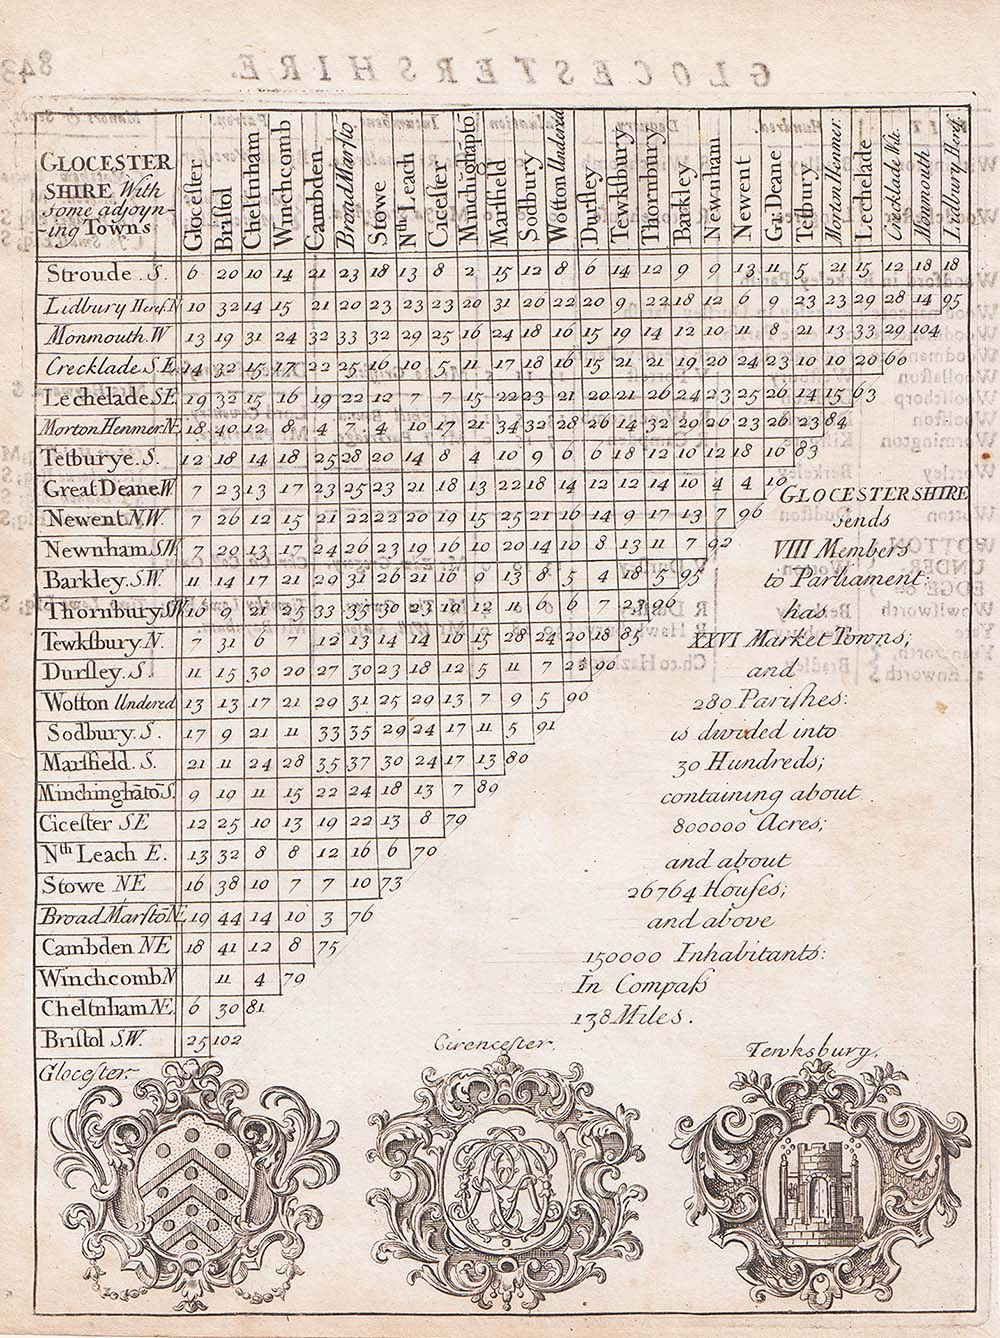 GLOCESTERSHIRE. 843
GLOCESTER
SHIRE With
some adjoyn-
-ing Towns
Gloceſter
Briſtol
Cheltnham
Winchcomb
Cambden
Broad Marſtō
Stowe
Nth Leach
Ciceſter
Marſfield
Sodbury
Wotton Undered
Durſley
Tewkſbury
Thornbury
Barkley
Newnham
Newent
Gr. Deane
Tetbury
Morton Henmer.
Lechelade
Cricklade Wil.
Monmouth
Lidbury Heref.
Stroude. S. 6 20 10 14 21 23 18 13 8 2 15 12 8 6 14 12 9 9 13 11 5 21 15 12 18 18
Lidbury Heref. N 10 32 14 15 21 20 23 23 23 20 31 26 22 20 9 22 18 12 6 9 23 23 29 28 14 95
Monmouth. W 13 19 31 24 32 33 32 29 25 16 24 18 16 15 19 14 12 10 11 8 21 13 33 29 104
Crecklade S.E. 14 32 15 17 22 25 16 10 5 11 17 18 16 15 21 21 19 20 24 23 10 10 20 60
Lechelade SE 19 32 15 16 19 22 12 7 7 15 22 23 21 20 21 26 24 23 25 20 14 15 63
Morton Henmer NE 18 40 12 8 4 7 4 10 17 21 34 32 28 26 14 32 29 20 23 26 23 84
Tetburye. S. 12 18 14 18 25 28 20 14 8 4 10 9 6 6 18 12 10 12 18 16 83
Great Deane W 7 23 13 17 23 25 23 21 18 13 22 18 14 12 12 14 10 4 4 10
Newent N.W. 7 26 12 15 21 22 22 20 19 15 25 21 16 14 9 17 13 7 96
Newnham SW 7 20 13 17 24 26 23 19 16 10 20 14 10 8 13 11 7 92
Barkley. S.W. 11 14 17 21 29 31 26 21 16 9 13 8 5 4 18 5 95
Thornbury SW 16 9 21 25 33 35 30 23 19 12 11 6 6 7 23 96
Tewkſbury N. 7 31 6 7 12 13 14 14 16 15 28 24 20 18 85
Durſley. S. 11 15 30 20 27 30 23 18 12 5 11 7 90
Wotton Undered 13 13 17 21 29 31 25 29 13 7 9 5 90
Sodbury. S. 17 9 21 11 33 35 29 24 17 11 5 91
Marſfield. S. 21 11 24 28 35 37 30 24 17 13 80
Minchinghātō S. 9 19 11 15 22 24 18 13 7 89
Ciceſter SE 12 25 10 13 19 22 13 8 79
Nth Leach E. 13 32 8 8 12 16 6 70
Stowe NE 16 38 10 7 7 10 73
Broad Marſtō NE 19 44 14 10 3 76
Cambden NE 18 41 12 8 75
Winchcomb N 11 4 79
Cheltnham NE. 6 30 81
Briſtol S.W. 25 102
GLOCESTERSHIRE
sends
VIII Members
to Parliament:
has
XXVI Market Towns;
and
280 Pariſhes:
is divided into
30 Hundreds;
containing about
800000 Acres;
and about
26764 Houſes;
and above
150000 Inhabitants:
In Compaſs
138 Miles.
Gloceſter.
Cirenceſter.
Tewksbury.